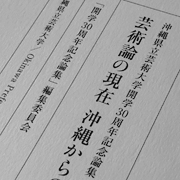 沖縄県立芸術大学開学30周年記念論集
芸術論の現在 沖縄から
「開学30周年記念論集」編集委員会
縄県立芸術大学/Okinawa Prefe